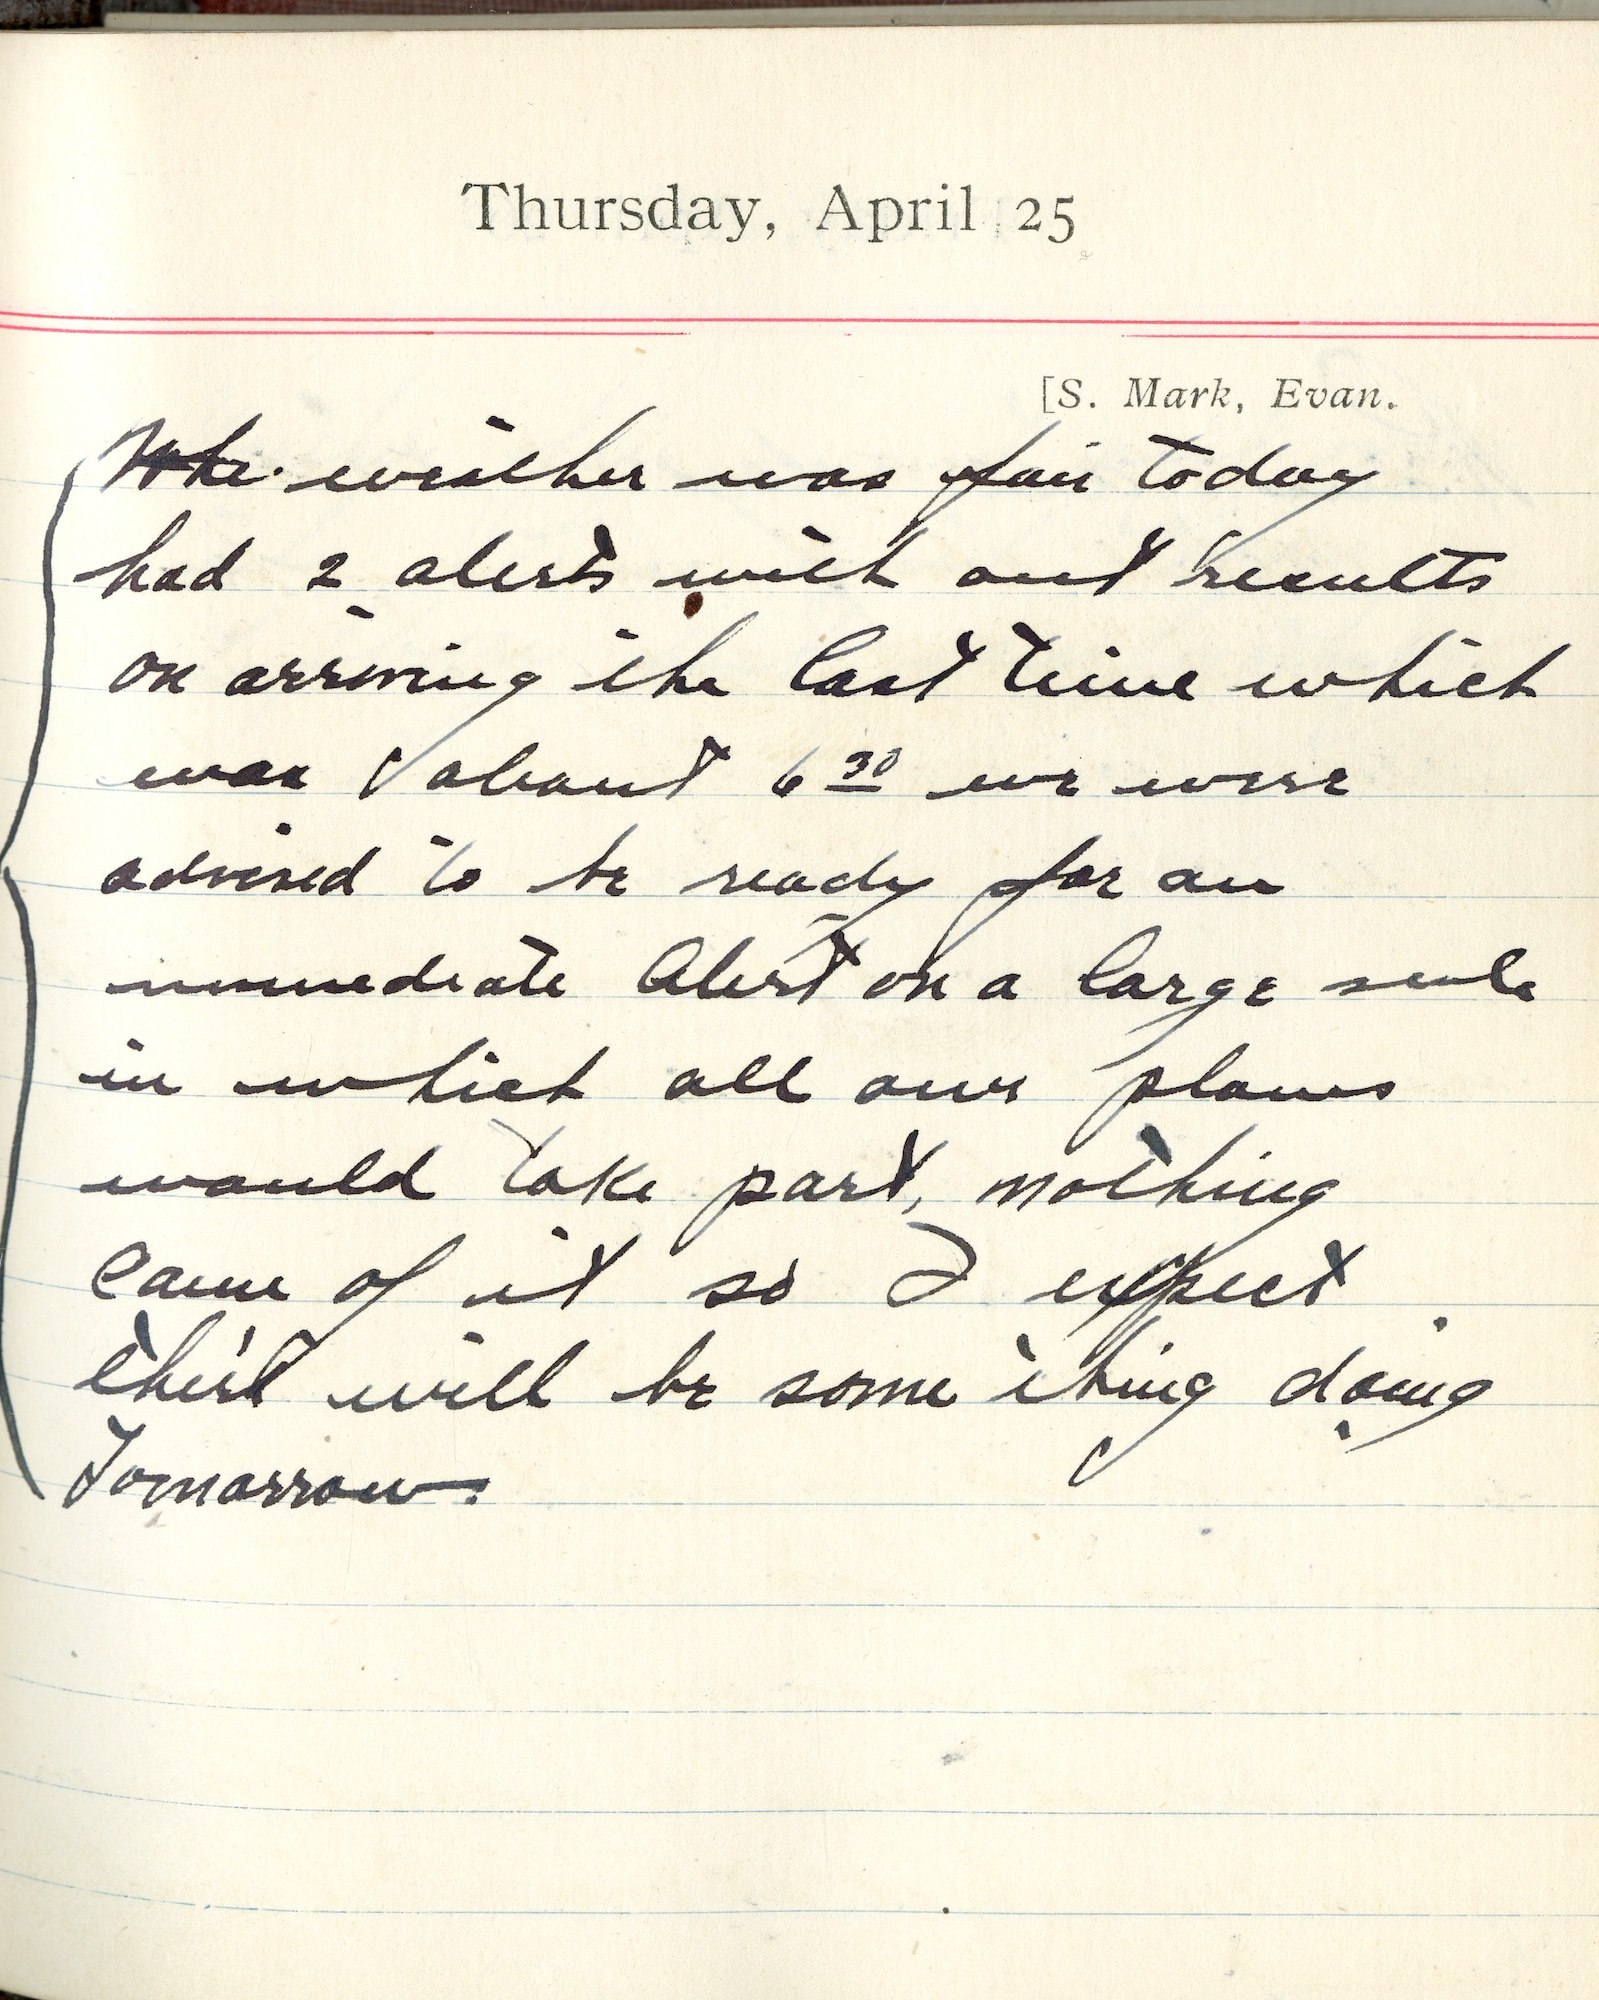 Thursday, April 25
[S. Mark, Evan.
The weather was fair today
had 2 alerts with out results
on arriving the last time which
was about 6 30 we were
advised to be ready for an
immediate Alert on a large scale
in which all our planes
would take part, nothing
came of it so I expect
there will be some thing doing
Tomorrow.